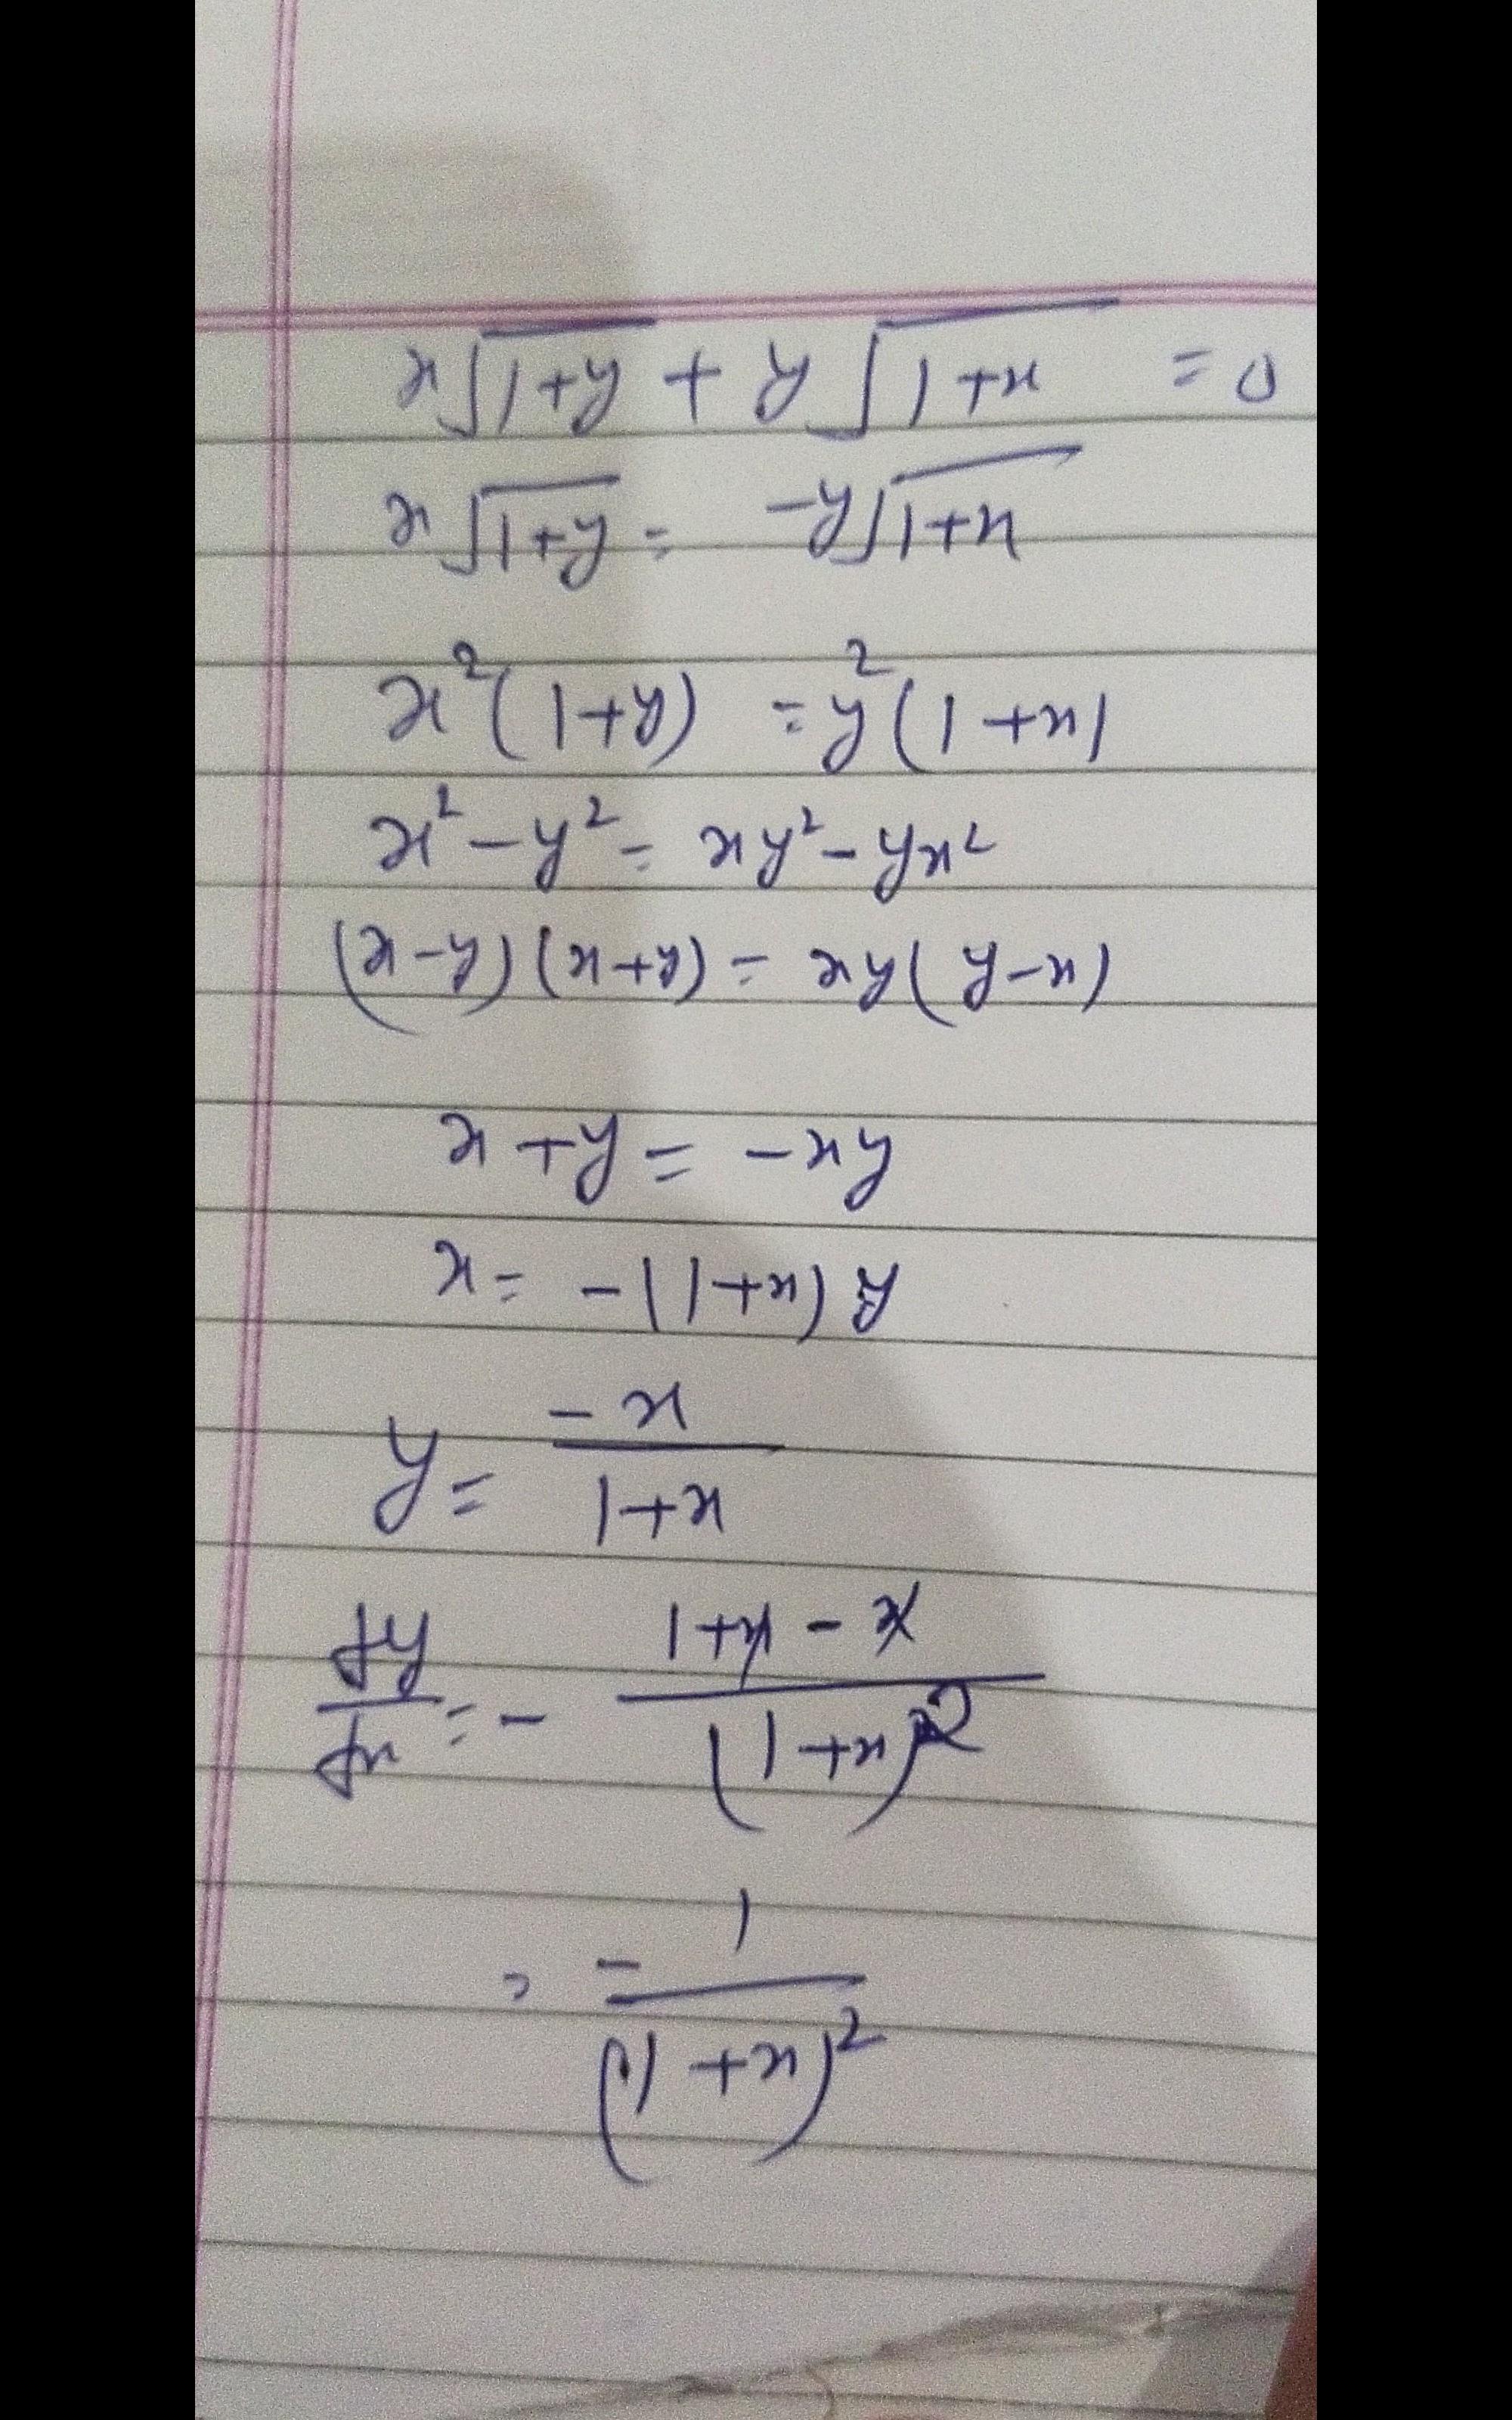 x√(1+y) + y√(1+x) = 0
x√(1+y) = -y√(1+x)
x²(1+y) = y²(1+x)
x² - y² = xy² - yx²
(x-y)(x+y) = xy(y-x)
x + y = -xy
x = -(1+x)y
y = -x/(1+x)
dy/dx = - (1+x-x)/(1+x)²
= -1/(1+x)²